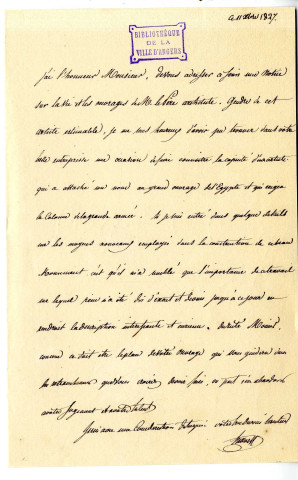 ce 11 xbre 1827.
BIBLIOTHÈQUE
DE LA
VILLE D'ANGERS
J'ai l'honneur Monsieur, de vous adresser ci joint une notice
sur la vie et les ouvrages de Mr. le Père architecte. Gendre de cet
artiste estimable, je me suis heureux d'avoir pu trouver dans votre
belle entreprise une occasion de faire connaître la capacité d'un artiste
qui a attaché son nom au grand ouvrage de l'Egypte et qui érigea
la Colonne de la grande armée. Si je suis entré dans quelque détails
sur les moyens nouveaux employés dans la construction de ce beau
Monument c'est qu'il m'a semblé que l'importance de ce travail
sur lequel rien n'a été dit d'exact et de vrai jusqu'à ce jour en
rendrait la description intéressante et curieuse. du reste Monsieur,
comme ce doit être le plan de votre ouvrage qui vous guidera dans
les retranchemens que vous croirez devoir faire, on peut s'en abandonner
à votre jugement et à votre talent
J'ai avec une Considération distinguée votre très dévoué serviteur